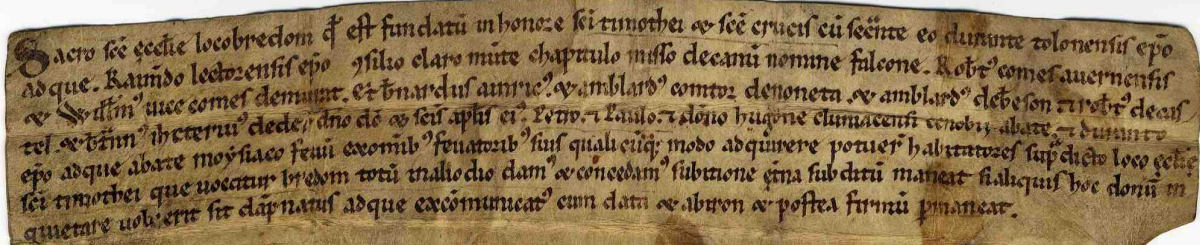 Sacro scē ecclīe locobredom q̄ est fundatū in honore sc̄i timothei & scē crucis cū seq̄nte eo durante tolonensis ep̄o
adque. Raim̄do lectorensis ep̄o ꝯsilio claro m̄te chapitulo misso decanū nomine falcone. Rob̄tꝰ comes auernensis
& Willm̄ꝰ uice comes demurat. et b̄nardus aurıcꝰ. & amblardꝰ comtor denoneta. & amblardꝰ deb̄eson & rob̄tꝰ de cas
tel. & ꝰ dño dō & sc̄is apl̄is eiꝰ. Petro. & Paulo. & dōno hugone cluniacensi cenobii abate. & duranto
ep̄o adque abate moysiaco feuū exomībꝰ feuatoribꝰ siue quali cūq; modo adquirere potuer̄ habitatores sup̄dicto loco ecl̄ie
sc̄i timothei que uocitur bredom totū in alio dio damꝰ & concedamꝰ sub itione et̄na subditū maneat si aliquis hoc donū in
quietare uoluerit sit dāpnatus adque excōmunicatꝰ cum datā & abiron & postea firmū ꝑmaneat.